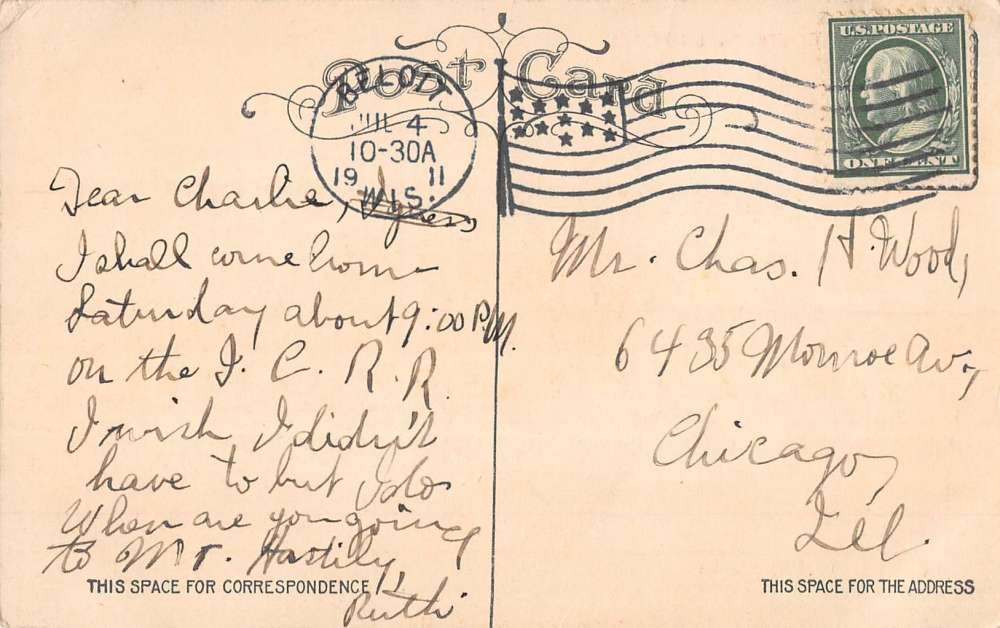 Post Card
BELOIT
JUL 4
10-30A
19 11
WIS.
U.S. POSTAGE
ONE CENT
Dear Charlie,
I shall come home
Saturday about 9:00 P.M.
on the I. C. R. R.
I wish I didn't
have to but I do
When are you going
to Mr. Hastily,
Ruth
Mr. Chas. H. Wood,
6435 Monroe Av.,
Chicago,
Ill.
THIS SPACE FOR CORRESPONDENCE
THIS SPACE FOR THE ADDRESS